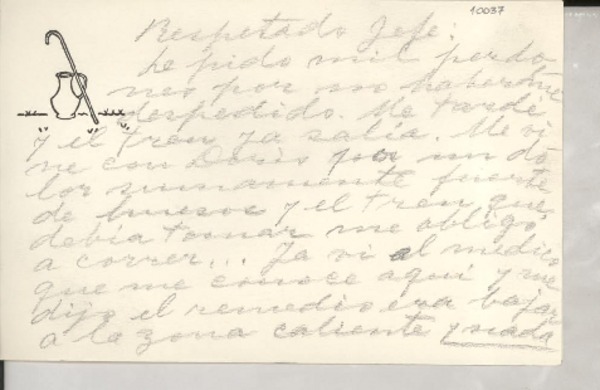 10037
Respetado Jefe:
Le pido mil perdo
nes por no haberme
despedido. Me tardé
y el tren ya salía. Me vi
ne con Doris por un do
lor sumamente fuerte
de huesos y el tren que
debía tomar me obligó
a correr... Ya vi al médico
que me conoce aquí y me
dijo el remedio era bajar
a la zona caliente y nada